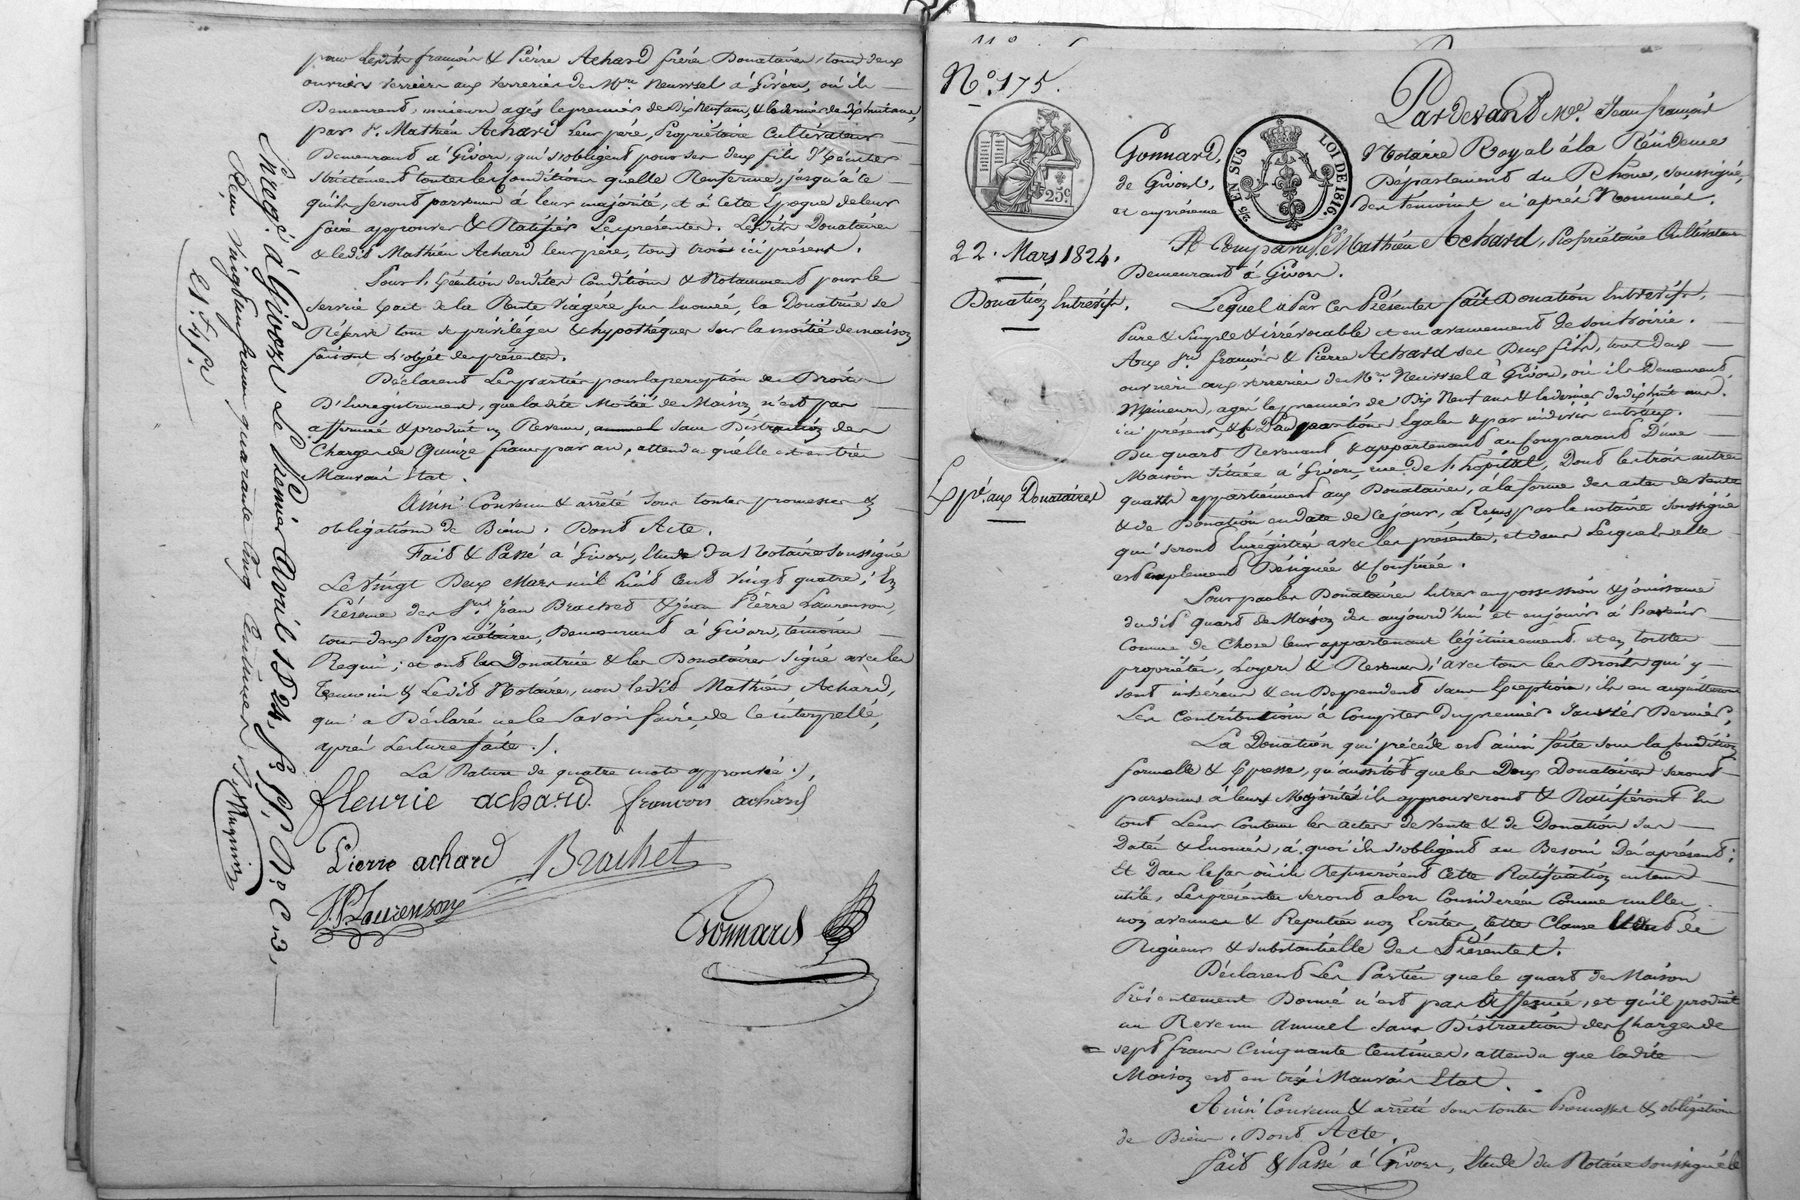 pour lesdits françois & Pierre Achard frères Donataires, tous deux
ouvriers verriers aux verreries de Mr. Neuvesel à Givors, où ils
Demeurent, mineurs agés le premier de Dix neuf ans, & le dernier de dix huit ans,
par Sr. Mathieu Achard leur père, Propriétaire Cultivateur
Demeurant à Givors, qui s'obligent pour ses deux fils d'Exécuter
strictement toutes les Conditions qu'elle Renferme, jusqu'à ce
qu'ils seront parvenus à leur majorité, et à cette Epoque de leur
faire approuver & Ratifier Les présentes. Lesdits Donataires
& ledit Mathieu Achard leur père, tous trois ici présents.
Pour L'Exécution desdites Conditions & Notamment pour le
Service Exact de la Rente Viagère sus Enoncée, la Donatrice se
Réserve tous ses privilèges & hypothèques sur la moitié de maison
faisant L'objet des présentes.
Déclarent Les parties pour la perception des Droits
D'Enregistrement, que ladite Moitié de Maison n'est pas
affermée & produit un Revenu annuel sans Distraction des
Charges de Quinze francs par an, attendu qu'elle est en très
Mauvais Etat.
Ainsi Convenu & arrêté sous toutes promesses &
obligations de Biens. Dont Acte.
Fait & Passé à Givors, Etude du Notaire soussigné
Le vingt Deux Mars mil huit Cent vingt quatre; En
Présence des Srs. Jean Brachet & Jean Pierre Laurenson,
tous deux Propriétaires, Demeurant à Givors, témoins
Requis; et ont la Donatrice & les Donataires signé avec les
Temoins & Ledit Notaire, non ledit Mathieu Achard,
qui a Déclaré ne le Savoir faire, de ce interpellé,
après Lecture faite ./.
La Rature de quatre mots approuvée ./.
fleurie achard. françois achard
Pierre achard Brachet
J.P. Laurenson
Gonnard
Enregé. à Givors Le Premier Avril 1824, fo. 91, Ro. C. 3,
Reçu vingt six francs quarante Cinq Centimes
Magnin
Et. 4 fr.
No. 175.
Pardevant Me. Jean françois
Gonnard, Notaire Royal à la Résidence
de Givors, Département du Rhône, soussigné,
et en présence des témoins ci après Nommés.
25c.
25c. EN SUS
LOI DE 1816.
22. Mars 1824.
Donation Entrevifs.
A Comparu Sr. Mathieu Achard, Propriétaire Cultivateur
Demeurant à Givors.
Lequel a Par Ces Présentes fait Donation Entrevifs,
Pure & Simple & irrévocable et en avancement de son hoirie.
Aux Srs. françois & Pierre Achard ses Deux fils, tous deux
ouvriers aux verreries de Mr. Neuvesel à Givors, où ils Demeurent,
Mineurs, agés le premier de Dix Neuf ans & le dernier de dix huit ans.
ici présents, & par portions Egales & par indivis entr'eux.
Du quart Revenant & appartenant au Comparant D'une
Maison située à Givors, rue de L'hôpital, Dont les trois autres
quarts appartiennent aux Donataires, à la forme des actes de vente
& de Donation en date de ce jour, & Reçus par le notaire soussigné
qui seront Enregistrés avec les présentes, et dans Lesquels elle
est amplement Désignée & Confinée.
Expé. aux Donataires
Pour par les Donataires Entrer en possession & jouissance
dudit quart de Maison dès aujourd'hui et en jouir à L'avenir
Comme de Chose leur appartenant légitimement et en toutes
propriétés, Loyers & Revenus; avec tous les Droits qui y
sont inhérens & en Dépendent sans Exception, ils en acquitteront
Les Contributions à Compter du premier Janvier Dernier,
La Donation qui précède est ainsi faite sous la Condition
formelle & Expresse, qu'aussitôt que les Deux Donataires seront
parvenus à leurs Majorités ils approuveront & Ratifieront En
tout Leur Contenu les actes de vente & de Donation sus
Datés & Enoncés, à quoi ils s'obligent au Besoin Dès à présent;
Et Dans le cas où ils Refuseraient Cette Ratification en tems
utile, Les présentes seront alors Considérées Comme nulles,
non avenues & Reputées non Ecrites, Cette Clause étant de
Rigueur & substantielle des Présentes.
Déclarent Les Parties que le quart de Maison
Présentement Donné n'est pas Affermé, et qu'il produit
un Revenu annuel sans Distraction des Charges de
sept francs Cinquante Centimes, attendu que ladite
Maison est en très Mauvais Etat.
Ainsi Convenu & arrêté sous toutes Promesses & obligations
de Biens. Dont Acte.
Fait & Passé à Givors, Etude du Notaire soussigné le